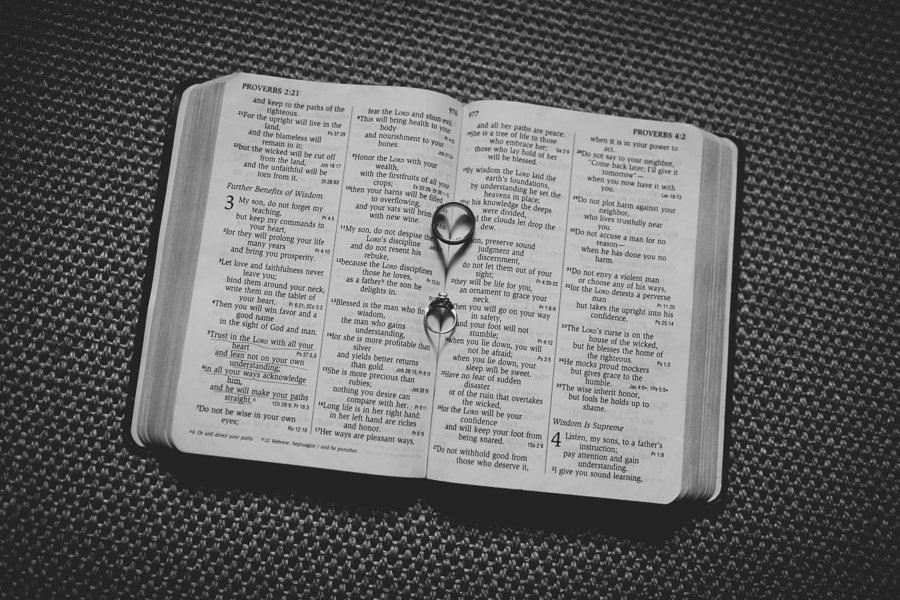 PROVERBS 2:21
and keep to the paths of the
righteous.
21For the upright will live in the
land, Ps 37:29
and the blameless will
remain in it;
22but the wicked will be cut off
from the land, Job 18:17
and the unfaithful will be
torn from it. Dt 28:63
Further Benefits of Wisdom
3 My son, do not forget my
teaching, Pr 4:5
but keep my commands in
your heart,
2for they will prolong your life
many years Pr 4:10
and bring you prosperity.
3Let love and faithfulness never
leave you;
bind them around your neck,
write them on the tablet of
your heart. Pr 6:21; 2Co 3:3
4Then you will win favor and a
good name
in the sight of God and man.
5Trust in the LORD with all your
heart Ps 37:3,5
and lean not on your own
understanding;
6in all your ways acknowledge
him,
and he will make your paths
straight. 1Ch 28:9; Pr 16:3
7Do not be wise in your own
eyes; Ro 12:16
a6 Or will direct your paths b12 Hebrew; Septuagint / and he punishes
976
fear the LORD and shun evil.
8This will bring health to your
body
and nourishment to your
bones.
9Honor the LORD with your
wealth,
with the firstfruits of all your
crops;
10then your barns will be filled
to overflowing,
and your vats will brim
with new wine.
11My son, do not despise the
LORD's discipline
and do not resent his
rebuke,
12because the LORD disciplines
those he loves,
as a father b the son he
delights in.
13Blessed is the man who
wisdom,
the man who gains
understanding,
14for she is more profitable than
silver
and yields better returns
than gold. Job 28:15; Pr 8:19
15She is more precious than
rubies; Job 28:18
nothing you desire can
compare with her. Pr 8:11
16Long life is in her right hand;
in her left hand are riches
and honor. Pr 8:18
17Her ways are pleasant ways,
977
and all her paths are peace.
18She is a tree of life to those
who embrace her; Ge 2:9
those who lay hold of her
will be blessed.
19By wisdom the LORD laid the
earth's foundations,
by understanding he set the
heavens in place;
by his knowledge the deeps
were divided,
and the clouds let drop the
dew.
preserve sound
judgment and
discernment,
do not let them out of your
sight; Pr 4:20-22
they will be life for you,
an ornament to grace your
neck. Pr 1:8-9
you will go on your way
in safety,
and your foot will not
stumble; Pr 4:12
when you lie down, you will
not be afraid; Ps 3:5
when you lie down, your
sleep will be sweet.
25Have no fear of sudden
disaster
or of the ruin that overtakes
the wicked,
26for the LORD will be your
confidence
and will keep your foot from
being snared. 1Sa 2:9
27Do not withhold good from
those who deserve it,
PROVERBS 4:2
when it is in your power to
act.
28Do not say to your neighbor,
"Come back later; I'll give it
tomorrow"—
when you now have it with
you. Lev 19:13
29Do not plot harm against your
neighbor,
who lives trustfully near
you.
30Do not accuse a man for no
reason—
when he has done you no
harm.
31Do not envy a violent man
or choose any of his ways,
32for the LORD detests a perverse
man Pr 11:20
but takes the upright into his
confidence. Ps 25:14
33The LORD's curse is on the
house of the wicked,
but he blesses the home of
the righteous. Ps 1:3
34He mocks proud mockers
but gives grace to the
humble. Jas 4:6*; 1Pe 5:5*
35The wise inherit honor,
but fools he holds up to
shame.
Wisdom Is Supreme
4 Listen, my sons, to a father's
instruction; Pr 1:8
pay attention and gain
understanding.
2I give you sound learning,